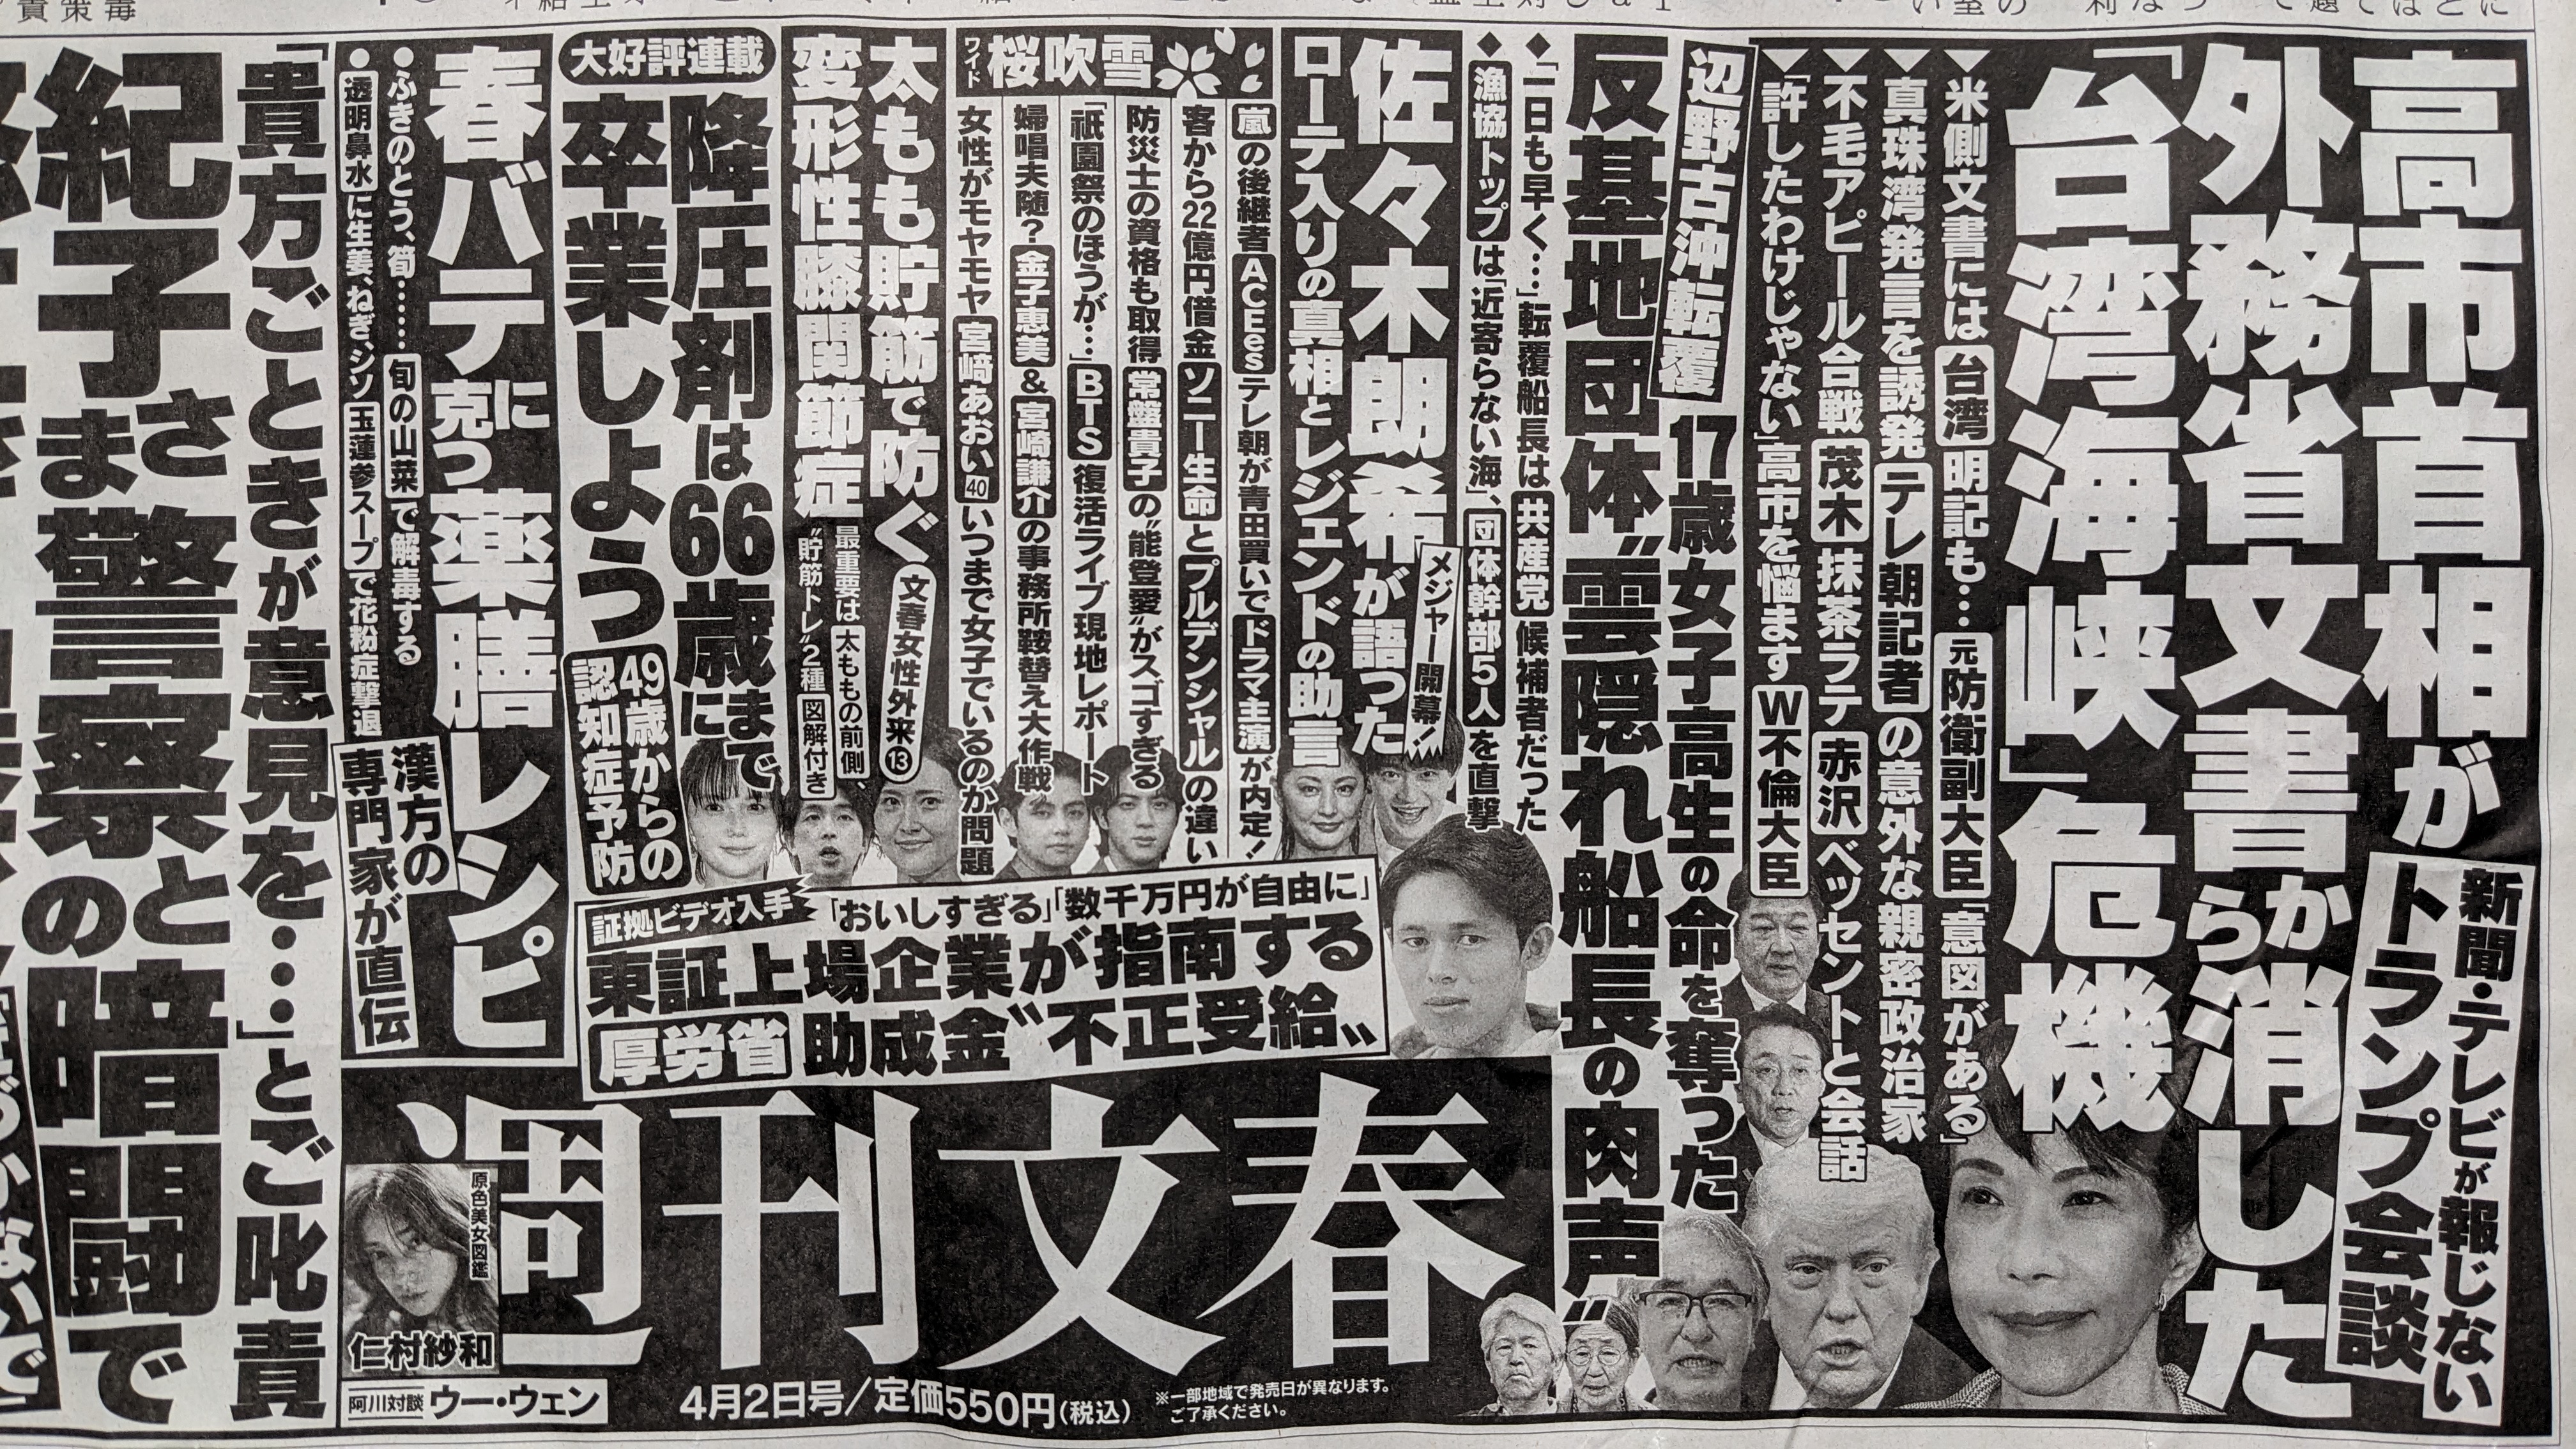 新聞・テレビが報じない
トランプ会談
高市首相が
外務省文書から消した
「台湾海峡」危機
▼米側文書には台湾明記も…元防衛副大臣「意図がある」
▼真珠湾発言を誘発テレ朝記者の意外な親密政治家
▼不毛アピール合戦茂木抹茶ラテ赤沢ベッセントと会話
▼「許したわけじゃない」高市を悩ますW不倫大臣
辺野古沖転覆
17歳女子高生の命を奪った
反基地団体“雲隠れ船長の肉声”
◆「一日も早く…」転覆船長は共産党候補者だった
◆漁協トップは「近寄らない海」、団体幹部5人を直撃
メジャー開幕!
佐々木朗希が語った
ローテ入りの真相とレジェンドの助言
ワイド桜吹雪
嵐の後継者ACEesテレ朝が青田買いでドラマ主演が内定!
客から22億円借金ソニー生命とプルデンシャルの違い
防災士の資格も取得常盤貴子の“能登愛”がスゴすぎる
「祇園祭のほうが…」BTS復活ライブ現地レポート
婦唱夫随?金子恵美&宮崎謙介の事務所鞍替え大作戦
女性がモヤモヤ宮﨑あおい40いつまで女子でいるのか問題
太もも貯筋で防ぐ
変形性膝関節症
文春女性外来⑬
最重要は太ももの前側、
“貯筋トレ”2種図解付き
大好評連載
降圧剤は66歳までに
卒業しよう
49歳からの
認知症予防
証拠ビデオ入手
「おいしすぎる」「数千万円が自由に」
東証上場企業が指南する
厚労省助成金“不正受給”
春バテに克つ薬膳レシピ
●ふきのとう、筍……旬の山菜で解毒する
●透明鼻水に生姜、ねぎ、シソ玉蓮参スープで花粉症撃退
漢方の
専門家が直伝
「貴方ごときが意見を…」とご叱責
紀子さま警察と暗闘で
週刊文春
原色美女図鑑
仁村紗和
阿川対談 ウー・ウェン
4月2日号/定価550円(税込)
※一部地域で発売日が異なります。
ご了承ください。